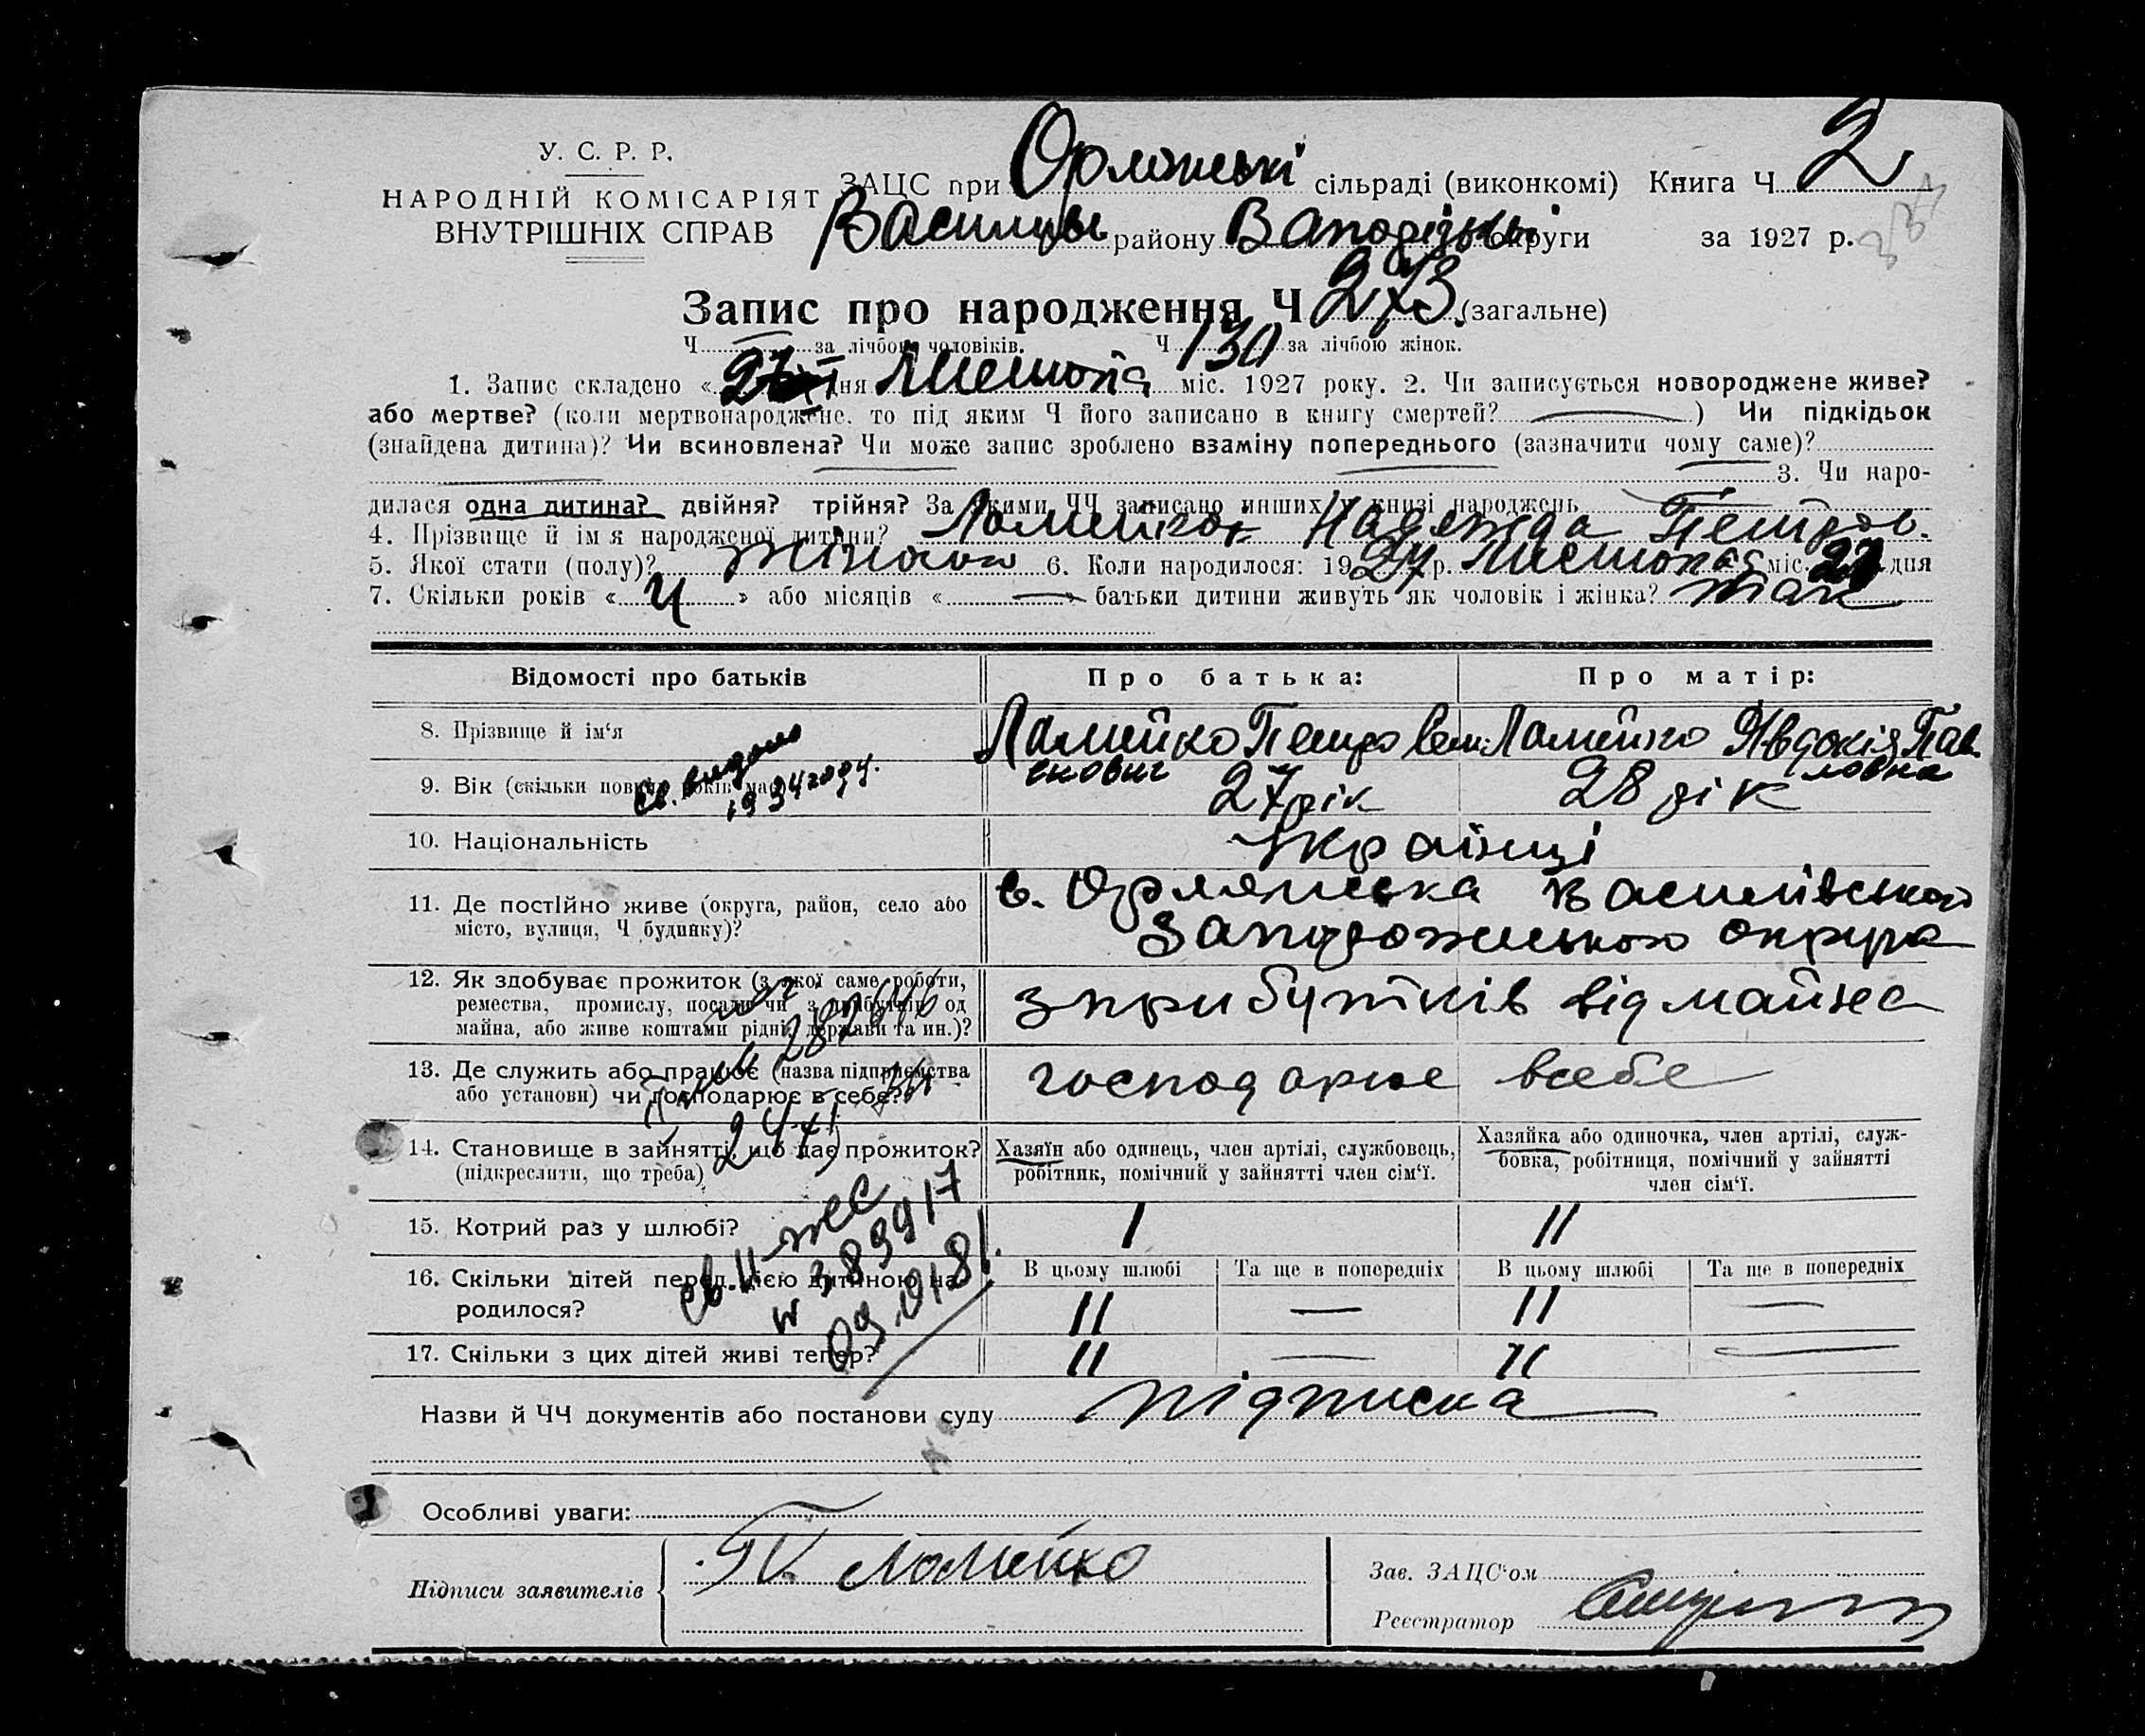 У. С. Р. Р.
НАРОДНІЙ КОМІСАРІЯТ
ВНУТРІШНІХ СПРАВ
ЗАЦС при сільраді (виконкомі) Книга Ч 2
району округи за 1927 р.
Запис про народження Ч 273 (загальне)
Ч за лічбою чоловіків. Ч 130 за лічбою жінок.
1. Запис складено « дня міс. 1927 року. 2. Чи записується новороджене живе?
або мертве? (коли мертвонароджене, то під яким Ч його записано в книгу смертей? ) Чи підкідьок
(знайдена дитина)? Чи всиновлена? Чи може запис зроблено взаміну попереднього (зазначити чому саме)?
3. Чи наро-
дилася одна дитина? двійня? трійня? За якими ЧЧ записано инших у книзі народжень
4. Прізвище й ім'я народженої дитини? Надежда
5. Якої стати (полу)? 6. Коли народилося: 1927 р. міс. дня
7. Скільки років « 4 » або місяців « — » батьки дитини живуть як чоловік і жінка? так
Відомості про батьків
Про батька:
Про матір:
8. Прізвище й ім'я
Ламейко Петро
Ламейко Явдокія Пав
ловна
9. Вік (скільки повних років має)
27 рік
28 рік
10. Національність
Українці
11. Де постійно живе (округа, район, село або
місто, вулиця, Ч будинку)?
с. Орлянська Василівськой
Запорожською округа
12. Як здобуває прожиток (з якої саме роботи,
ремества, промислу, посади чи з прибутків од
майна, або живе коштами рідні, держави та ин.)?
з прибутків від майна
13. Де служить або працює (назва підприємства
або установи) чи господарює в себе?
господарює в себе
14. Становище в зайнятті, що дає прожиток?
(підкреслити, що треба)
Хазяїн або одинець, член артілі, службовець,
робітник, помічний у зайнятті член сім'ї.
Хазяйка або одиночка, член артілі, служ-
бовка, робітниця, помічний у зайнятті
член сім'ї.
15. Котрий раз у шлюбі?
I
II
16. Скільки дітей перед цією дитиною на-
родилося?
В цьому шлюбі
Та ще в попередніх
В цьому шлюбі
Та ще в попередніх
II — II —
17. Скільки з цих дітей живі тепер?
II — II —
Назви й ЧЧ документів або постанови суду підписка
Особливі уваги:
Підписи заявителів
П. Ломейко
Зав. ЗАЦС'ом
Реєстратор